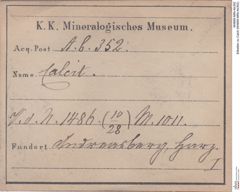 K. K. Mineralogisches Museum.
Acq. Post A.b. 352.
Name Calcit.
J. d. N. 1486. (10/28) M. 1011.
Fundort Andreasberg, Harz.
I